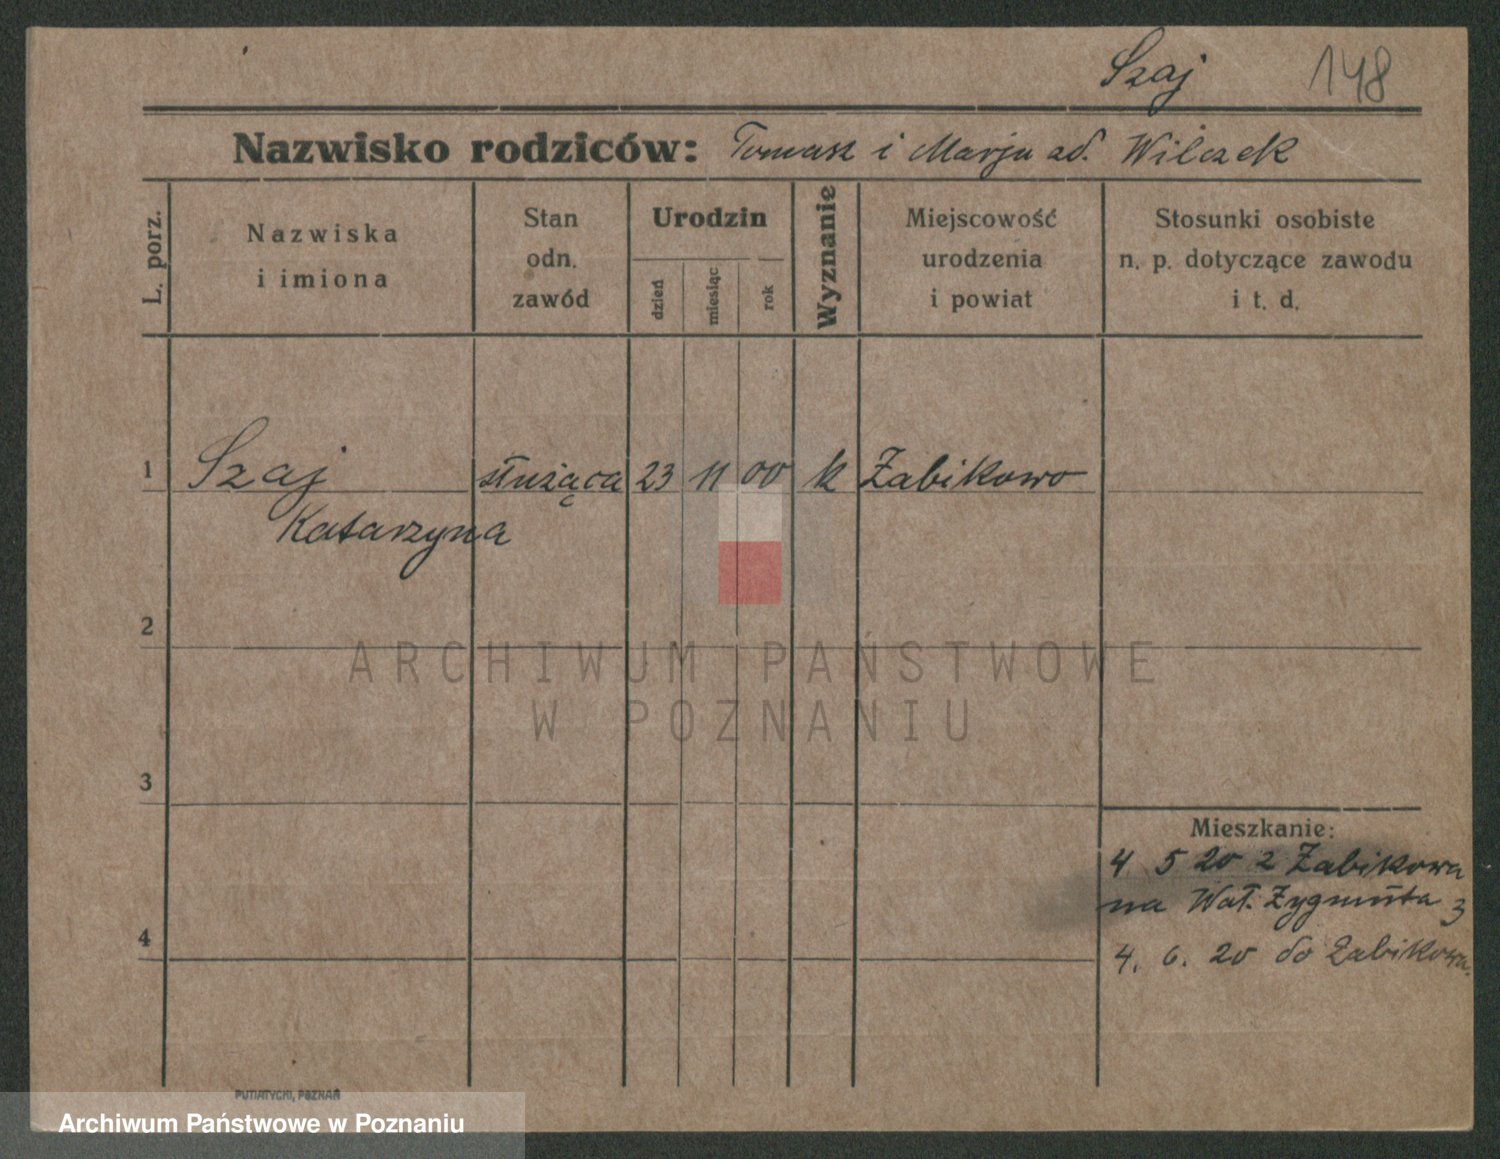 Szaj 148
Nazwisko rodziców: Tomasz i Marja zd. Wilczek
L. porz.
Nazwiska
i imiona
Stan
odn.
zawód
Urodzin
dzień
miesiąc
rok
Wyznanie
Miejscowość
urodzenia
i powiat
Stosunki osobiste
n. p. dotyczące zawodu
i t. d.
1 Szaj służąca 23 11 00 k Żabikowo
Katarzyna
2
ARCHIWUM PAŃSTWOWE
W POZNANIU
3
Mieszkanie:
4 5 20 z Żabikowa
na Wał. Zygmunta 3
4
4. 6. 20 do Żabikowa.
PUTIATYCKI, POZNAŃ
Archiwum Państwowe w Poznaniu